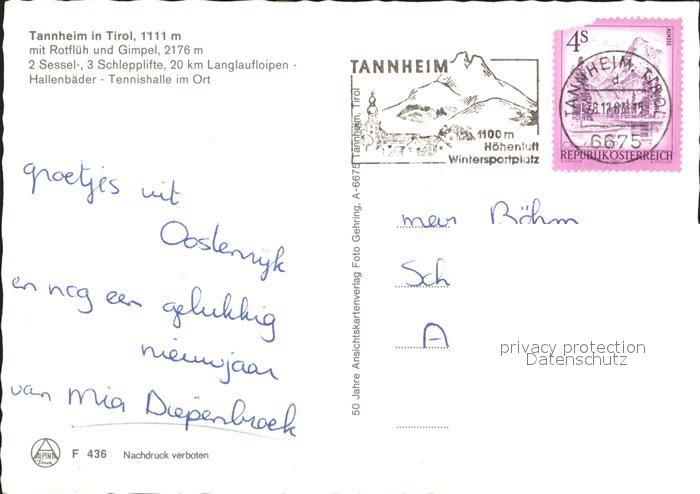 Tannheim in Tirol, 1111 m
mit Rotflüh und Gimpel, 2176 m
2 Sessel-, 3 Schlepplifte, 20 km Langlaufloipen -
Hallenbäder - Tennishalle im Ort
TANNHEIM
1100 m
Höhenluft
Wintersportplatz
4 S
ALMSEE
TANNHEIM, TIROL
d
6675
REPUBLIK ÖSTERREICH
groetjes uit
Oostenrijk
en nog een gelukkig
nieuwjaar
van Mia Diepenbroek
50 Jahre Ansichtskartenverlag Foto Gehring, A-6675 Tannheim, Tirol
mevr Böhm
Sch
A
privacy protection
Datenschutz
ALPINA
F 436 Nachdruck verboten